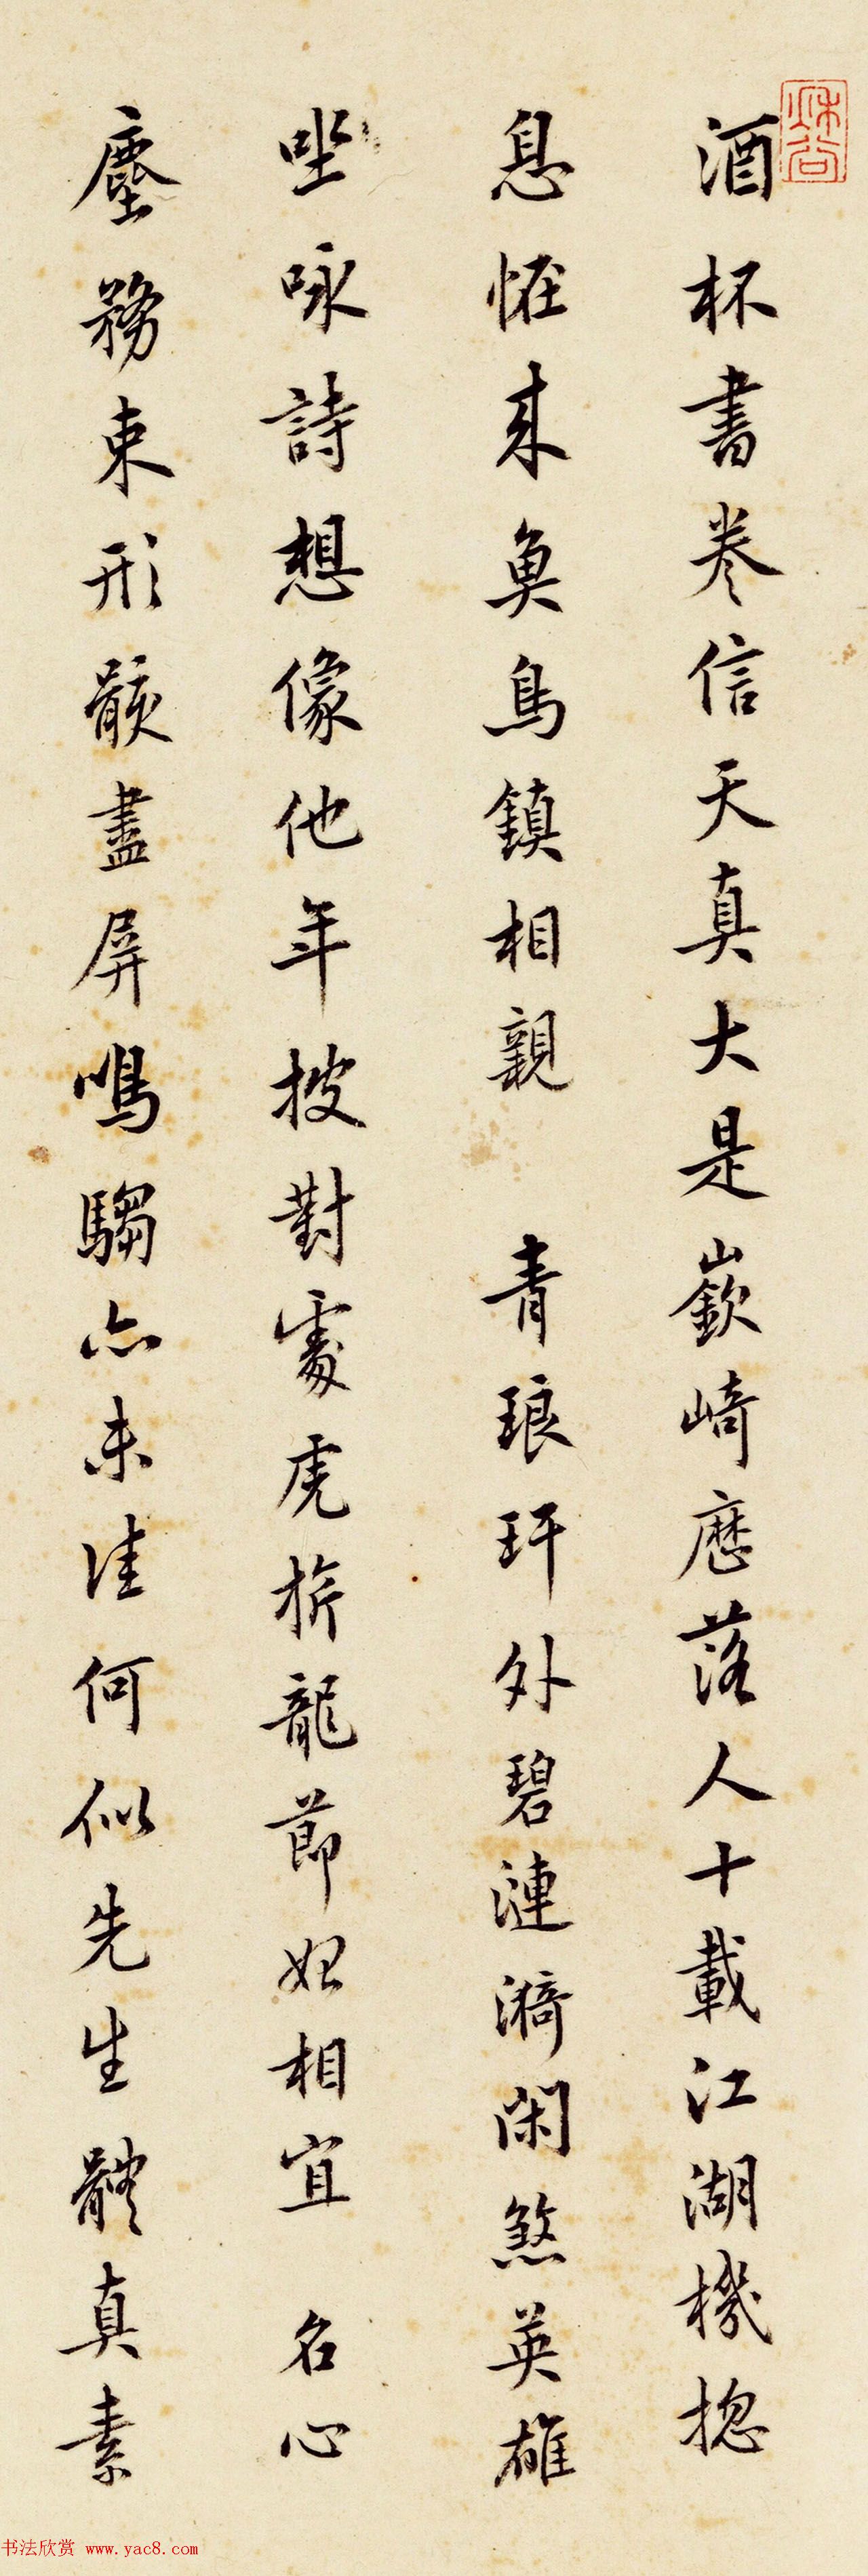 酒杯書卷信天真大是嶔崎歷落人十載江湖機揔
息恠來魚鳥鎮相親 青琅玕外碧漣漪閑煞英雄
坐咏詩想像他年披對處虎旂龍節妃相宜 名心
塵務束形骸盡屏鳴騶亦未佳何似先生體真素
书法欣赏 www.yac8.com